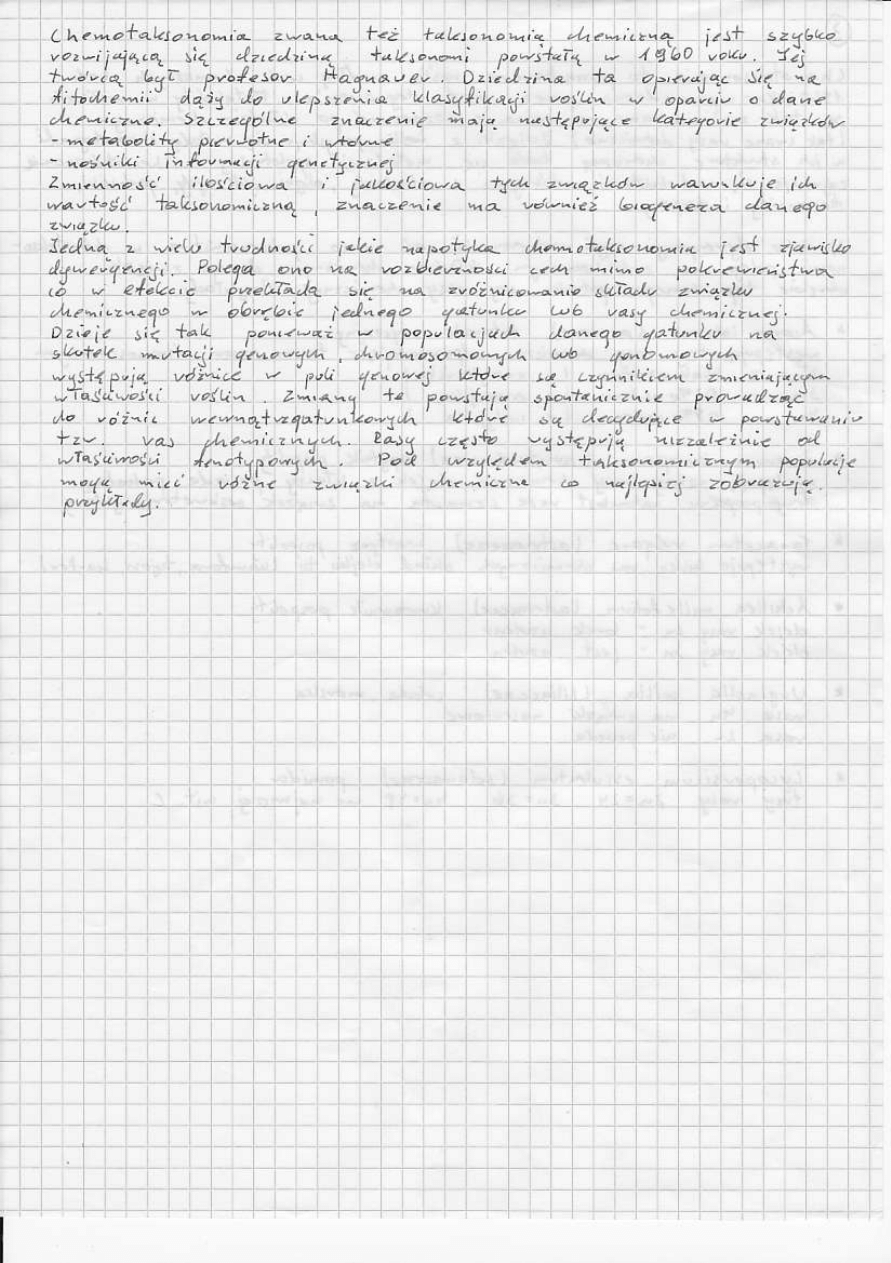 Chemotaksonomia zwana też taksonomią chemiczną jest szybko
rozwijającą się dziedziną taksonomi powstałą w 1960 roku. Jej
twórcą był profesor Hagnauer. Dziedzina ta opierając się na
fitochemii dąży do ulepszenia klasyfikacji roślin w oparciu o dane
chemiczne. Szczególne znaczenie mają następujące kategorie związków
- metabolity pierwotne i wtórne
- nośniki informacji genetycznej
Zmienność ilościowa i jakościowa tych związków warunkuje ich
wartość taksonomiczną, znaczenie ma również biogeneza danego
związku.
Jedną z wielu trudności jakie napotyka chemotaksonomia jest zjawisko
dywergencji. Polega ono na rozbieżności cech mimo pokrewieństwa
co w efekcie przekłada się na zróżnicowanie składu związku
chemicznego w obrębie jednego gatunku lub rasy chemicznej.
Dzieje się tak ponieważ w populacjach danego gatunku na
skutek mutacji genowych, chromosomowych lub genomowych
występują różnice w puli genowej które są czynnikiem zmieniającym
właściwości roślin. Zmiany te powstają spontanicznie prowadząc
do różnic wewnątrzgatunkowych które są decydujące w powstawaniu
tzw. ras chemicznych. Rasy często występują niezależnie od
właściwości fenotypowych. Pod względem taksonomicznym populacje
mogą mieć różne związki chemiczne co najlepiej zobrazują
przykłady.